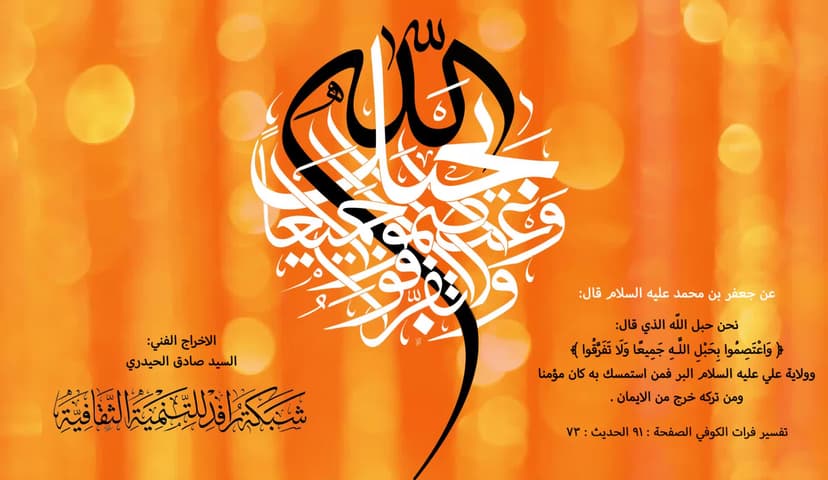 وَاعْتَصِمُوا بِحَبْلِ اللَّهِ جَمِيعًا وَلَا تَفَرَّقُوا
عن جعفر بن محمد عليه السلام قال:
نحن حبل اللّه الذي قال:
﴿ وَاعْتَصِمُوا بِحَبْلِ اللَّـهِ جَمِيعًا وَلَا تَفَرَّقُوا ﴾
وولاية علي عليه السلام البر فمن استمسك به كان مؤمنا
ومن تركه خرج من الايمان .
تفسير فرات الكوفي الصفحة : ٩١ الحديث : ٧٣
الاخراج الفني:
السيد صادق الحيدري
شَبَكَةُ رَافِدٍ لِلتَّنْمِيَةِ الثَّقَافِيَّةِ